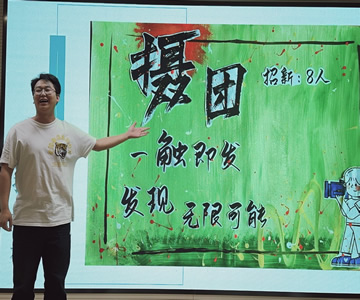 摄团
招新：8人
一触即发
发现 无限可能